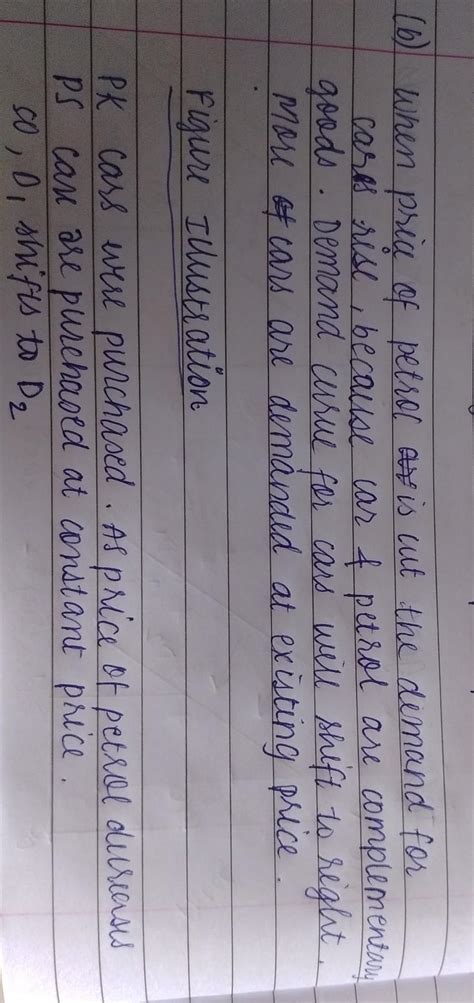 (b) when price of petrol is cut the demand for
cars rise, because car & petrol are complementary
goods. Demand curve for cars will shift to right.
More cars are demanded at existing price.
Figure Illustration
PK cars were purchased. As price of petrol dureases
PS cars are purchased at constant price.
so, D1 shifts to D2